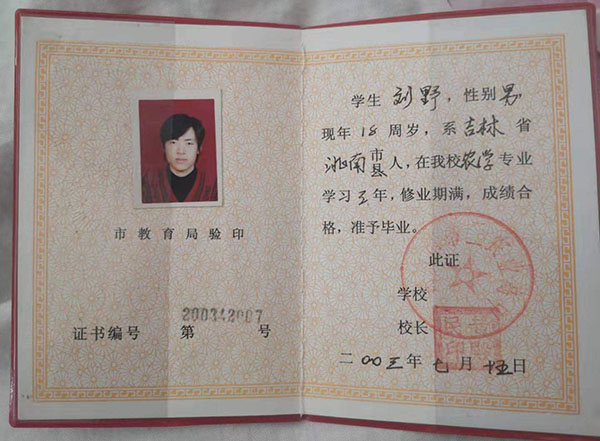 市教育局验印
证书编号 第 200342007 号
学生 刘野，性别 男
现年 18 周岁，系 吉林 省
洮南 市县 人，在我校 农学 专业
学习 三 年，修业期满，成绩合
格，准予毕业。
此证
学校
校长
二〇〇三年 七 月 十五 日